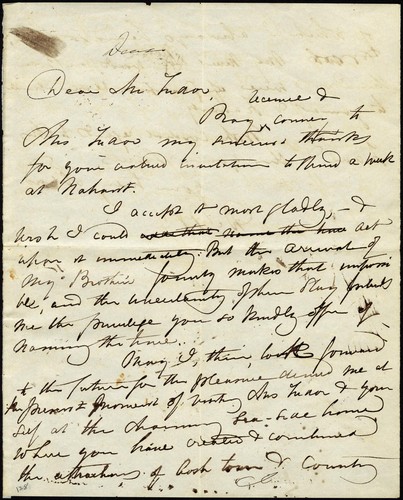 Dear Mr Tudor
receive &
Pray convey to
Mrs Tudor my sincere thanks
for your valued invitation to spend a week
at Nahant.
I accept it most gladly, & 
wish I could name the time act
upon it immediately. But the arrival of
my Brother's family makes that impossi
ble, and the uncertainty of their stay forbids
me the privilege you so kindly offer of
naming the time.
May I, then, look forward
to the future for the pleasure denied me at
the present moment of visiting Mrs Tudor & your
self at the charming sea-side home
where you have created & combined
the attractions of both town & country